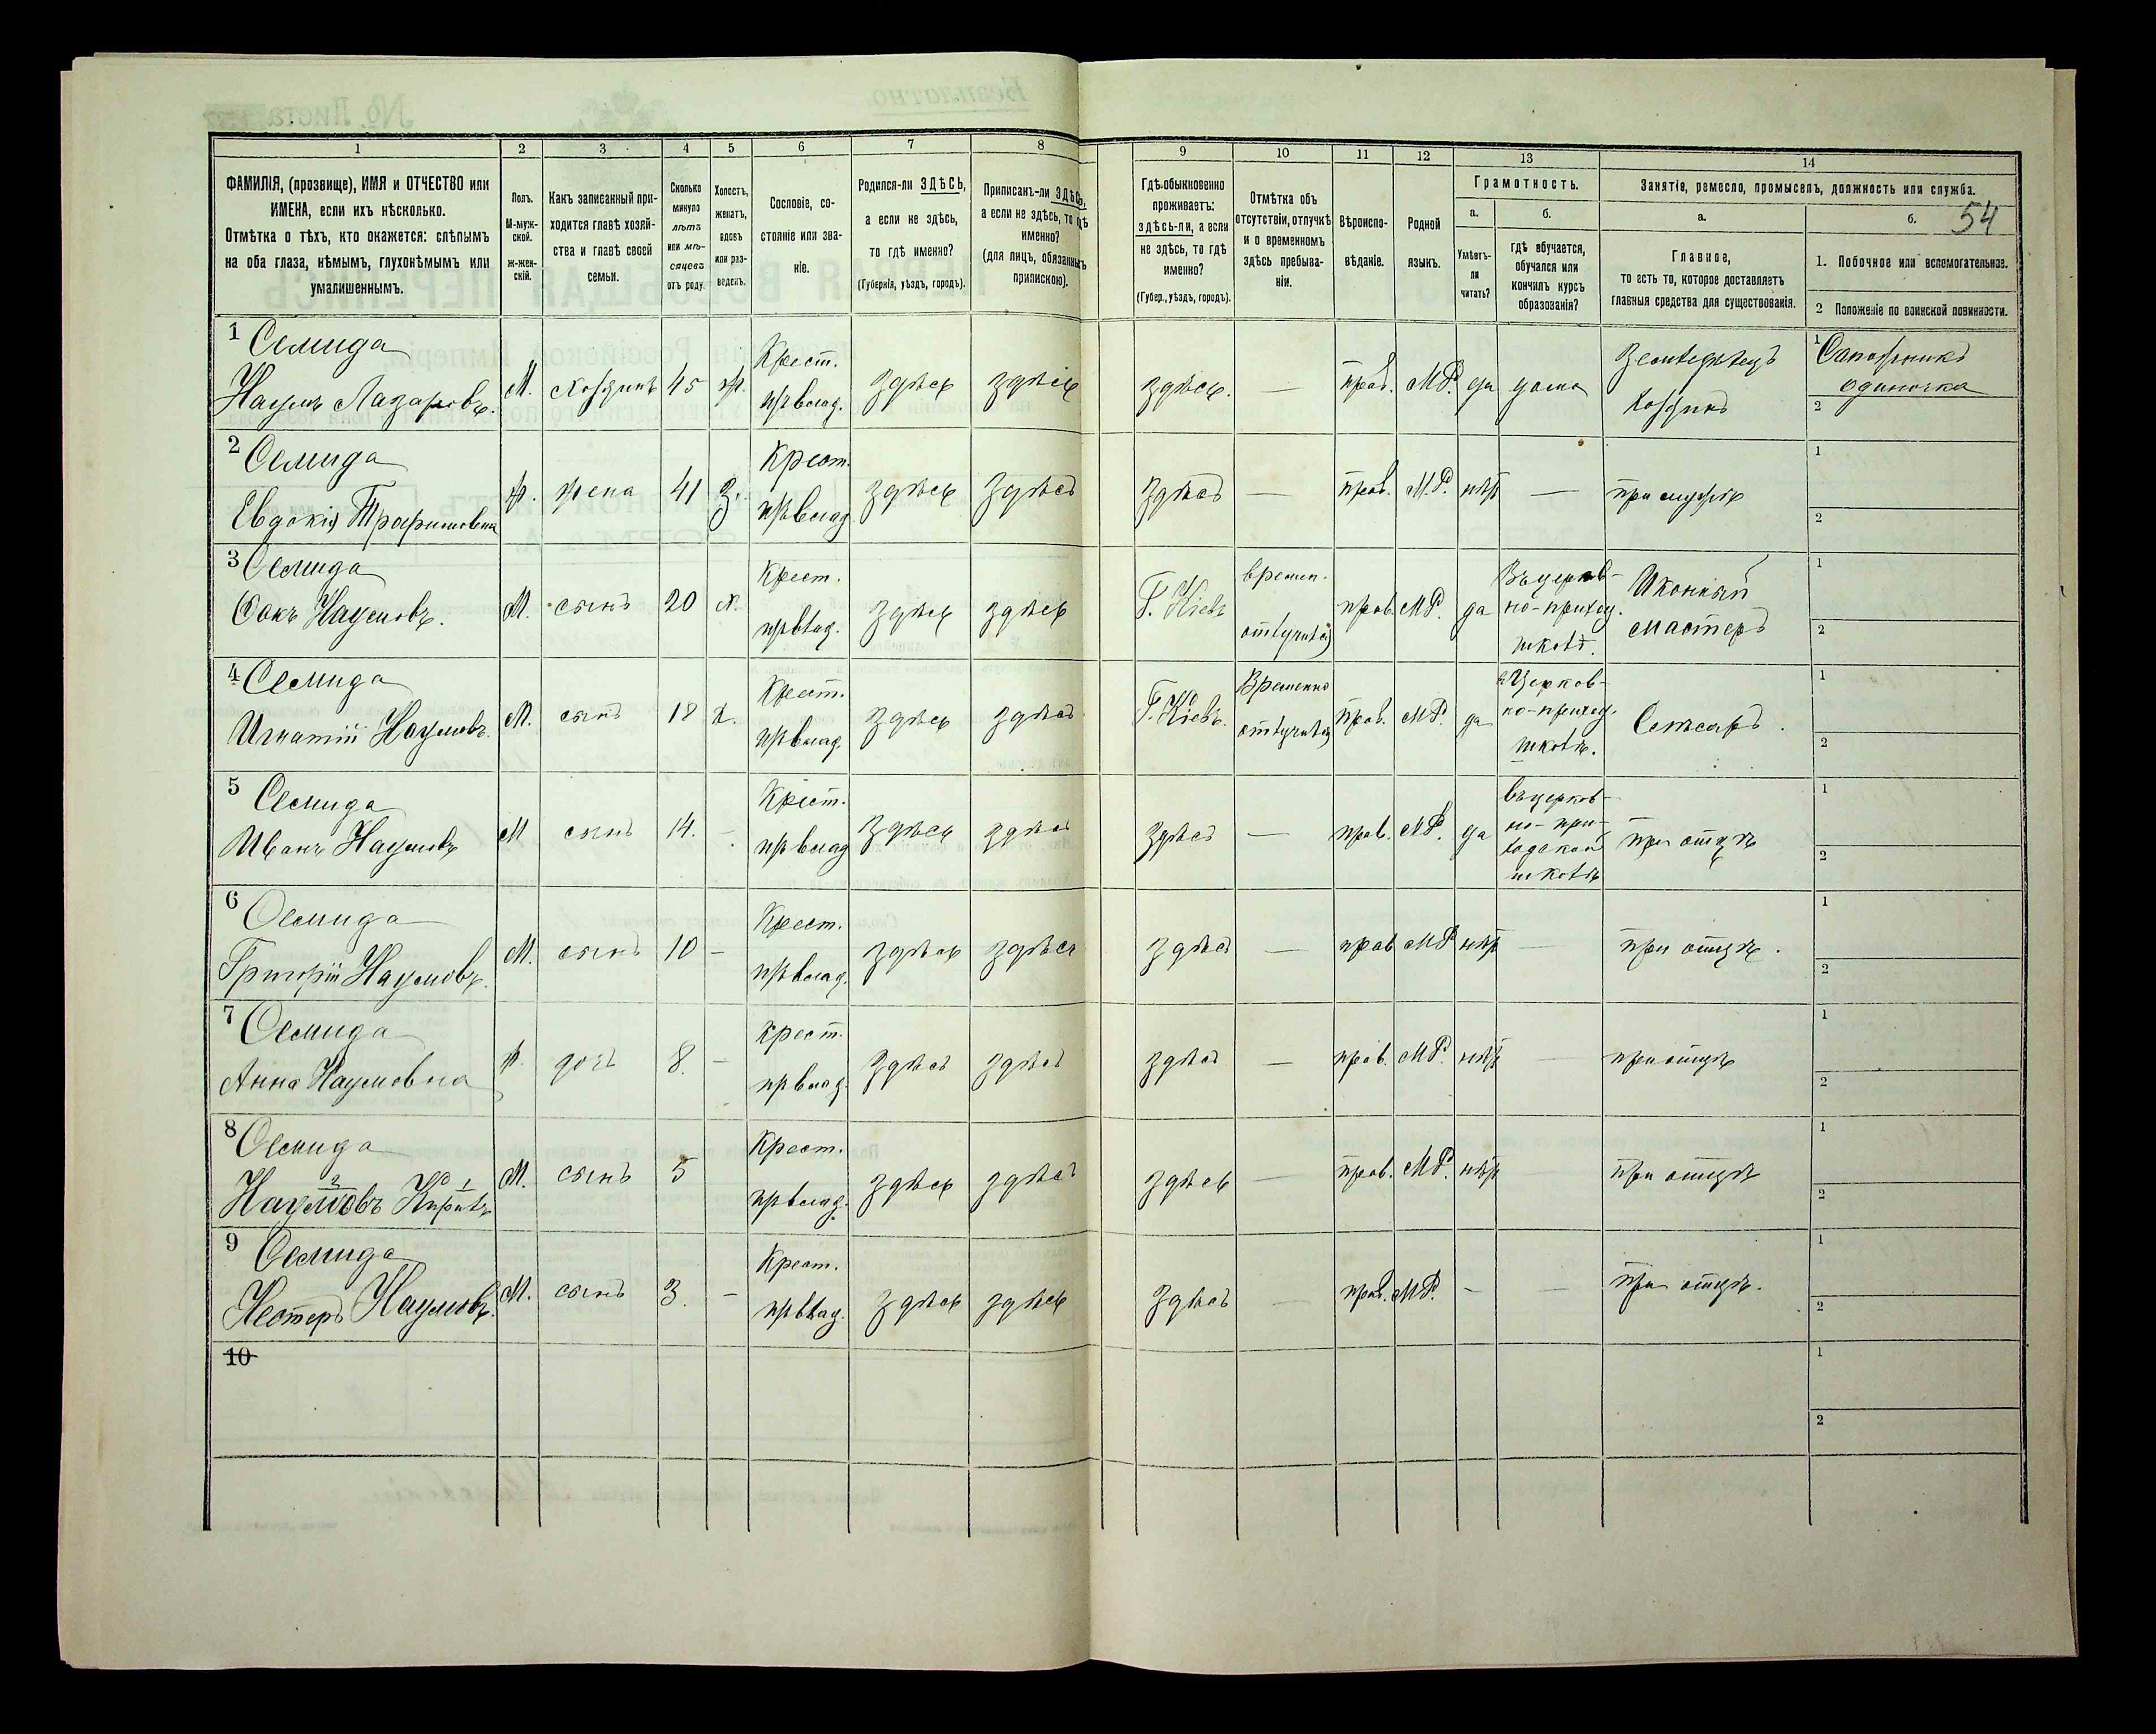 54
1 2 3 4 5 6 7 8 9 10 11 12 13 14
ФАМИЛІЯ, (прозвище), ИМЯ и ОТЧЕСТВО или
ИМЕНА, если ихъ нѣсколько.
Отмѣтка о тѣхъ, кто окажется: слѣпымъ
на оба глаза, нѣмымъ, глухонѣмымъ или
умалишеннымъ.
Полъ.
М-муж-
ской.
ж-жен-
скій.
Какъ записанный при-
ходится главѣ хозяй-
ства и главѣ своей
семьи.
Сколько
минуло
лѣтъ
или мѣ-
сяцевъ
отъ роду.
Холостъ,
женатъ,
вдовъ
или раз-
веденъ.
Сословіе, со-
стояніе или зва-
ніе.
Родился-ли ЗДѢСЬ,
а если не здѣсь,
то гдѣ именно?
(Губернія, уѣздъ, городъ).
Приписанъ-ли ЗДѢСЬ,
а если не здѣсь, то гдѣ
именно?
(для лицъ, обязанныхъ
припискою).
Гдѣ обыкновенно
проживаетъ:
здѣсь-ли, а если
не здѣсь, то гдѣ
именно?
(Губер., уѣздъ, городъ).
Отмѣтка объ
отсутствіи, отлучкѣ
и о временномъ
здѣсь пребыва-
ніи.
Вѣроиспо-
вѣданіе.
Родной
языкъ.
Грамотность.
а. б.
Умѣетъ-
ли
читать?
гдѣ обучается,
обучался или
кончилъ курсъ
образованія?
Занятіе, ремесло, промыселъ, должность или служба.
а. б.
Главное,
то есть то, которое доставляетъ
главныя средства для существованія.
1. Побочное или вспомогательное.
2 Положеніе по воинской повинности.
1 Семида
Наумъ Лазаровъ.
М. хозяинъ 45 ж.
Крест.
пр влад.
здѣсь здѣсь здѣсь. — прав. М.Р. да дома
Земледѣлецъ
Хозяинъ
1 Сапожникъ
одиночка
2
2 Семида
Евдокія Трофимовна
ж. жена 41 з.
Крест.
пр влад
здѣсь здѣсь здѣсь — прав. М.Р. нѣт — при мужѣ
1
2
3 Семида
Сакъ Наумовъ.
М. сынъ 20 х.
Крест.
пр влад.
здѣсь здѣсь Г. Кіевъ
времен.
отлучился
прав. М.Р. да
Въ церков-
но-приход.
школѣ.
Иконный
мастеръ
1
2
4 Семида
Игнатій Наумовъ.
М. сынъ 18 х.
Крест.
пр влад.
здѣсь здѣсь Г. Кіевъ.
Временно
отлучился
прав. М.Р. да
в Церков-
но-приход.
школѣ.
Слѣсарь.
1
2
5 Семида
Иванъ Наумовъ
М сынъ 14. —
Крест.
пр влад
здѣсь здѣсь здѣсь — прав. М.Р. да
въ церков-
но-при-
ходской
школѣ
при отцѣ
1
2
6 Семида
Григорій Наумовъ.
М. сынъ 10 —
Крест.
пр влад.
здѣсь здѣсь здѣсь — прав М.Р нѣт — при отцѣ.
1
2
7 Семида
Анна Наумовна
ж. дочь 8. —
крест.
пр влад.
здѣсь здѣсь здѣсь — прав. М.Р. нѣт — при отцѣ
1
2
8 Семида
2 1
Наумовъ Кирилъ
М. сынъ 5
Крест.
пр влад.
здѣсь здѣсь здѣсь — прав. М.Р. нѣт при отцѣ
1
2
9 Семида
Нестеръ Наумовъ.
М. сынъ 3. —
Крест.
пр влад.
здѣсь здѣсь здѣсь — прав. М.Р. — — при отцѣ.
1
2
10
1
2